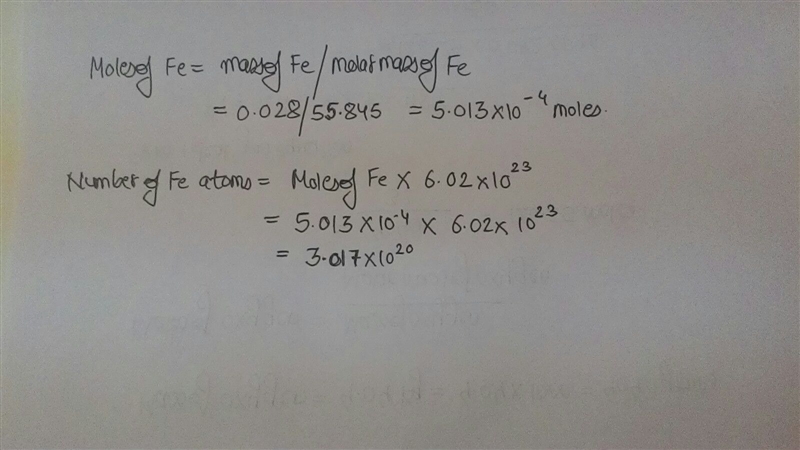 Moles of Fe = mass of Fe / molar mass of Fe
= 0.028/55.845 = 5.013×10⁻⁴ moles.
Number of Fe atoms = Moles of Fe × 6.02×10²³
= 5.013×10⁻⁴ × 6.02×10²³
= 3.017×10²⁰